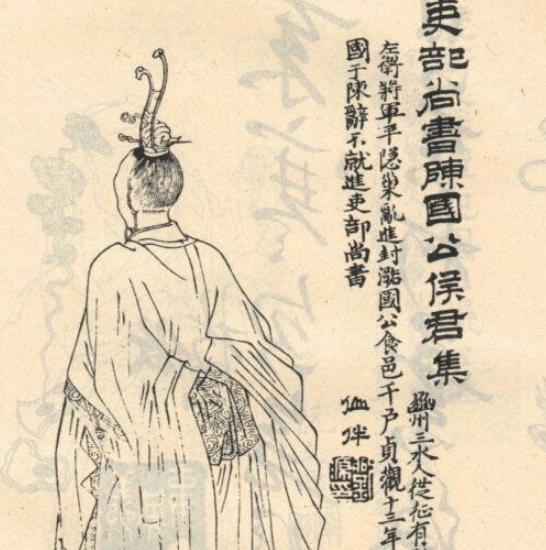 吏部尚書陳國公侯君集
豳州三水人從征有
左衛將軍平隱巢亂進封潞國公食邑千戶貞觀十三年
國于陳辭不就進吏部尚書
仙伴